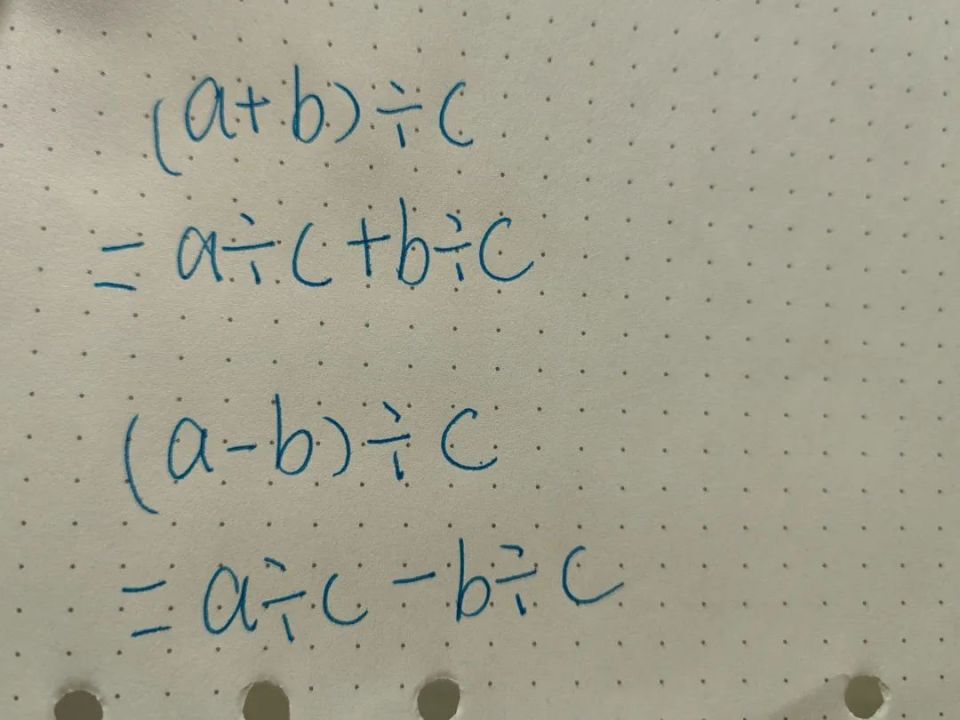 (a+b)÷c
=a÷c+b÷c
(a-b)÷c
=a÷c-b÷c